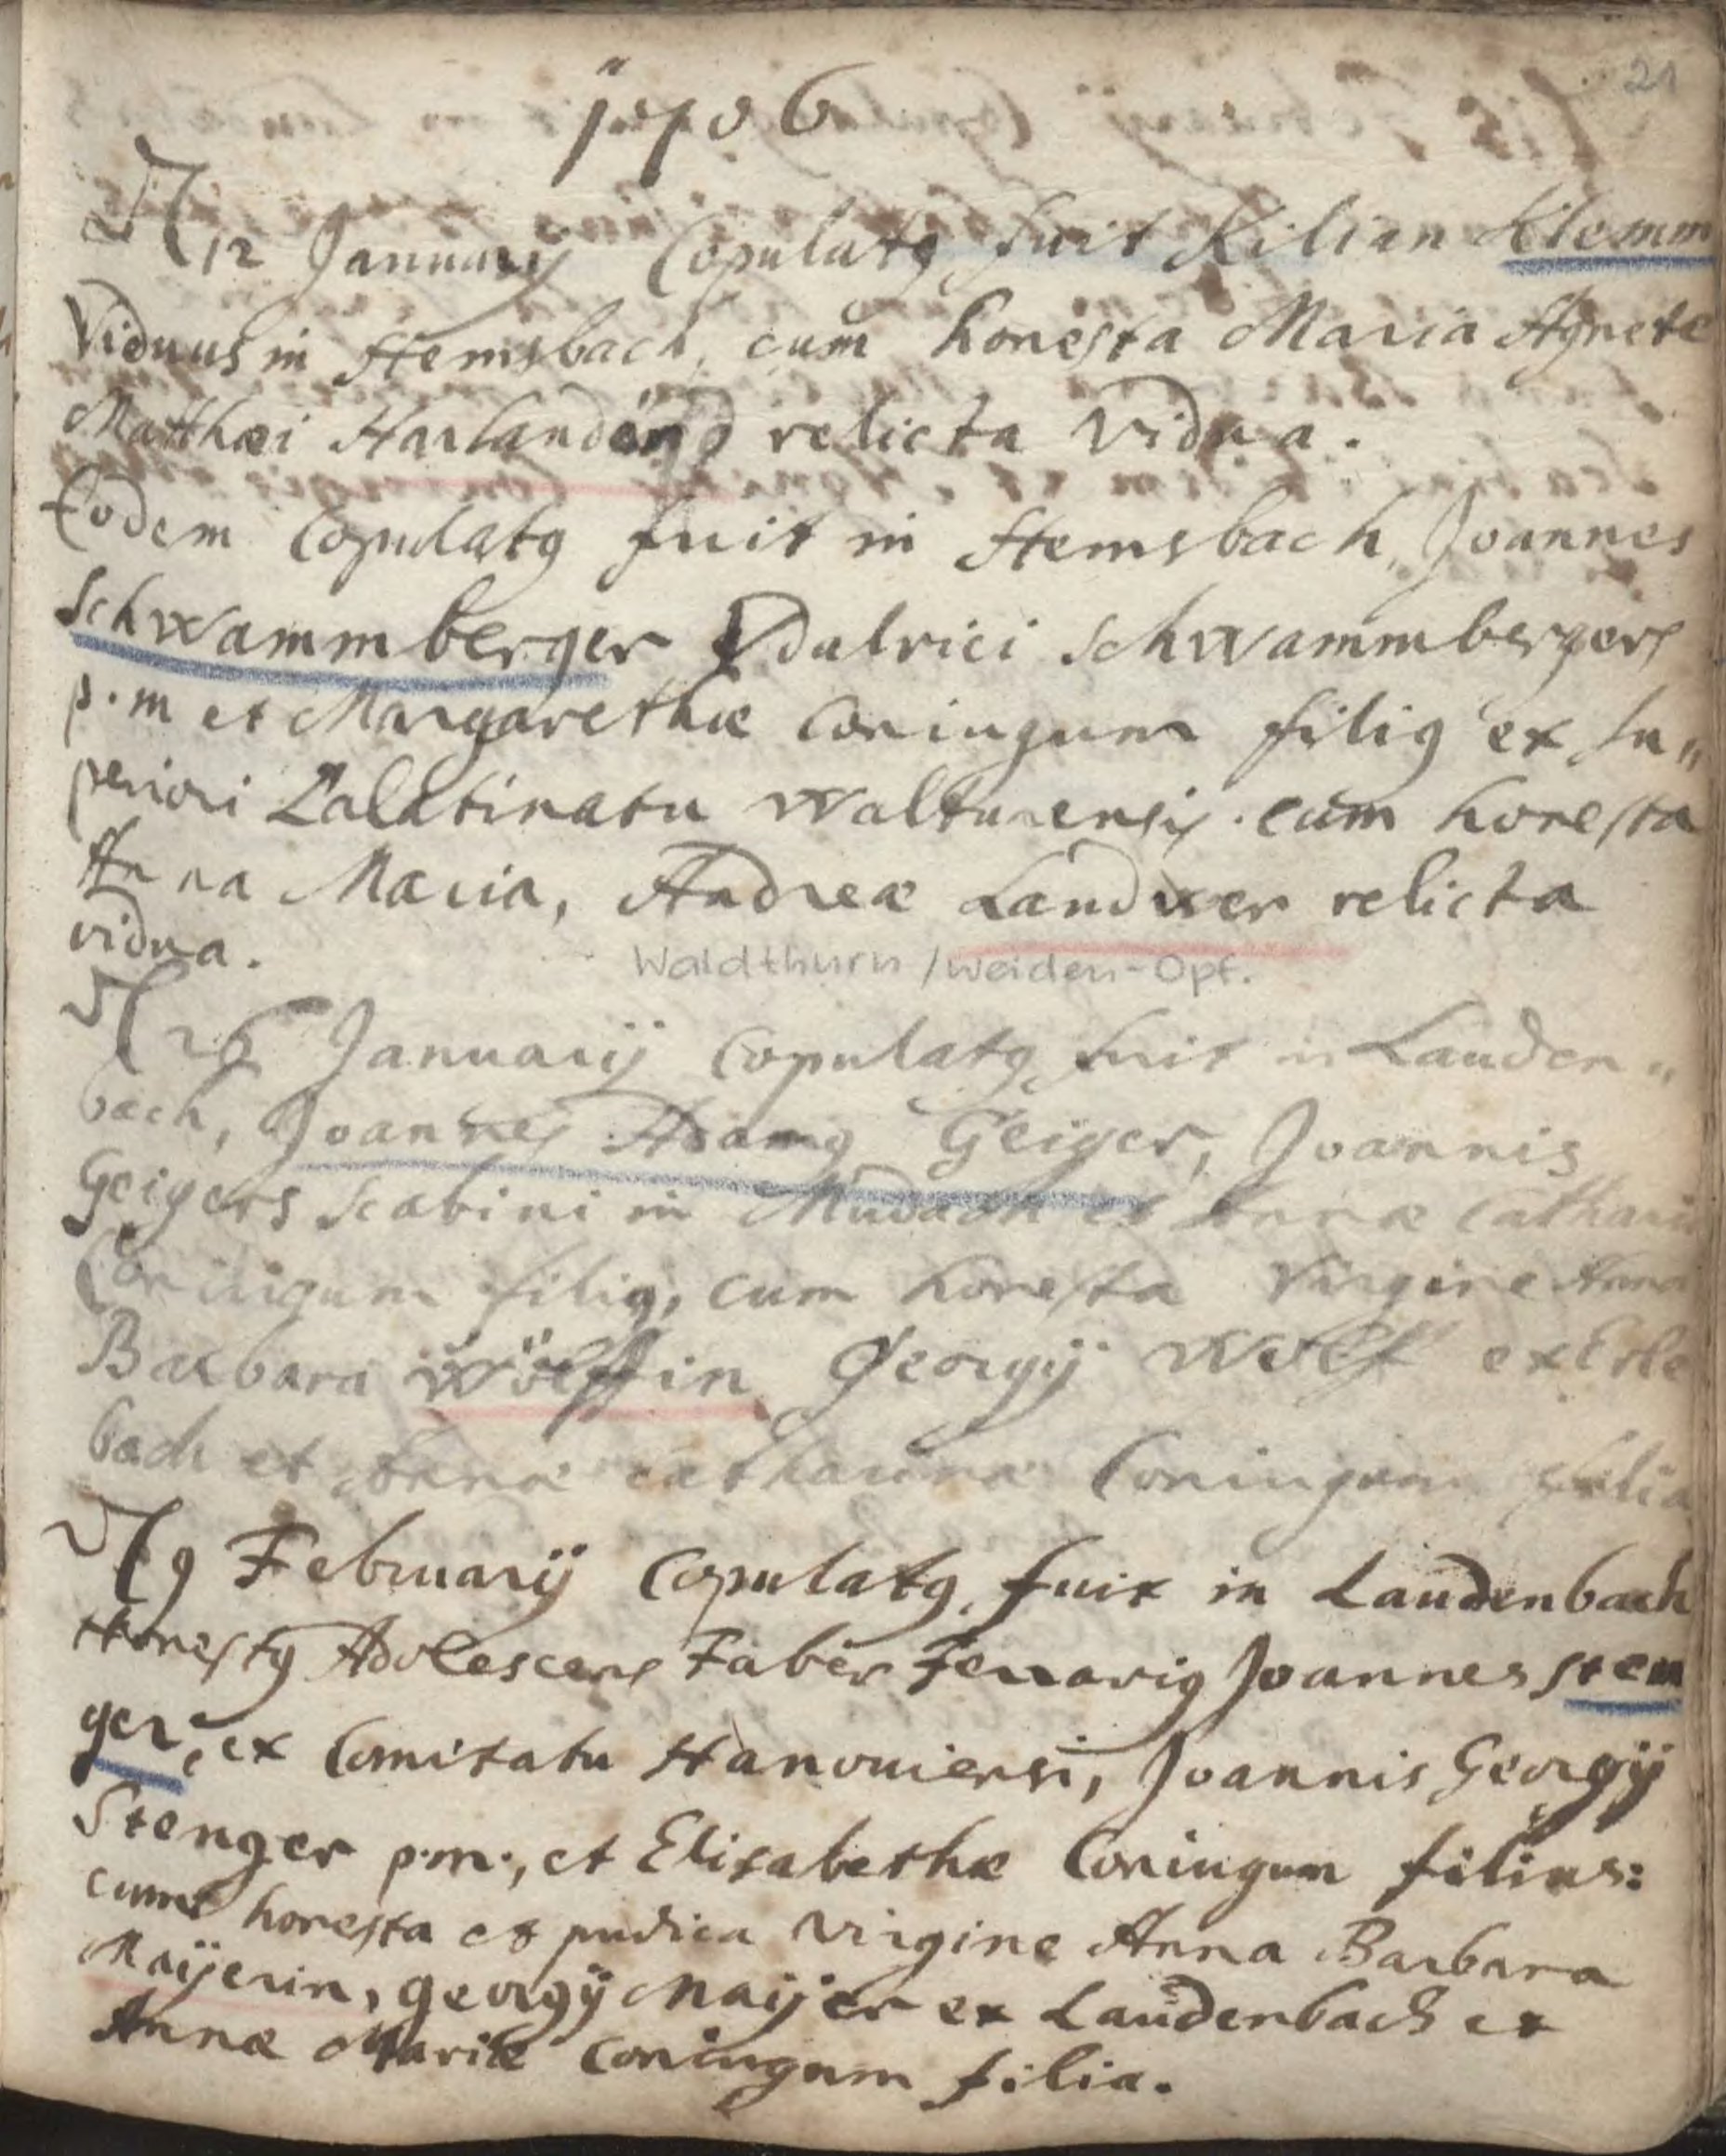 21
1706
12 Januarij Copulatg fuit Kilian Klemm
Viduus in Hemsbach, cum honesta Maria Agnete
Matthæi Harlandörs relicta Vidua.
Eodem Copulatg fuit in Hemsbach, Joannes
Schwammberger Vdalrici Schwammbergers
p.m et Margarethæ Coniugum filig ex Su„
periori Palatinatu Walturensis. cum honesta
Anna Maria, Andreæ Landwer relicta
vidua.
Waldthurn / Weiden-Opf.
26 Januarij Copulatg fuit in Lauden„
bach, Joannes Adamg Geiger, Joannis
Geigers Scabini in Mudach et Annæ Catharin
Coniugum filig, cum honesta Virgine Anna
Barbara Wölffin Georgij Wolff ex Erle
bach et Annæ Catharinæ Coniugum filia
9 Februarij Copulatg fuit in Laudenbach
Honestg Adolescens Faber Ferrarig Joannes Sten
ger, ex Comitatu Hanoviensi, Joannis Georgij
Stenger p.m., et Elisabethæ Coniugum filius:
cum honesta et pudica Virgine Anna Barbara
Maijerin, Georgij Maijer ex Laudenbach et
Annæ Mariæ Coniugum filia.